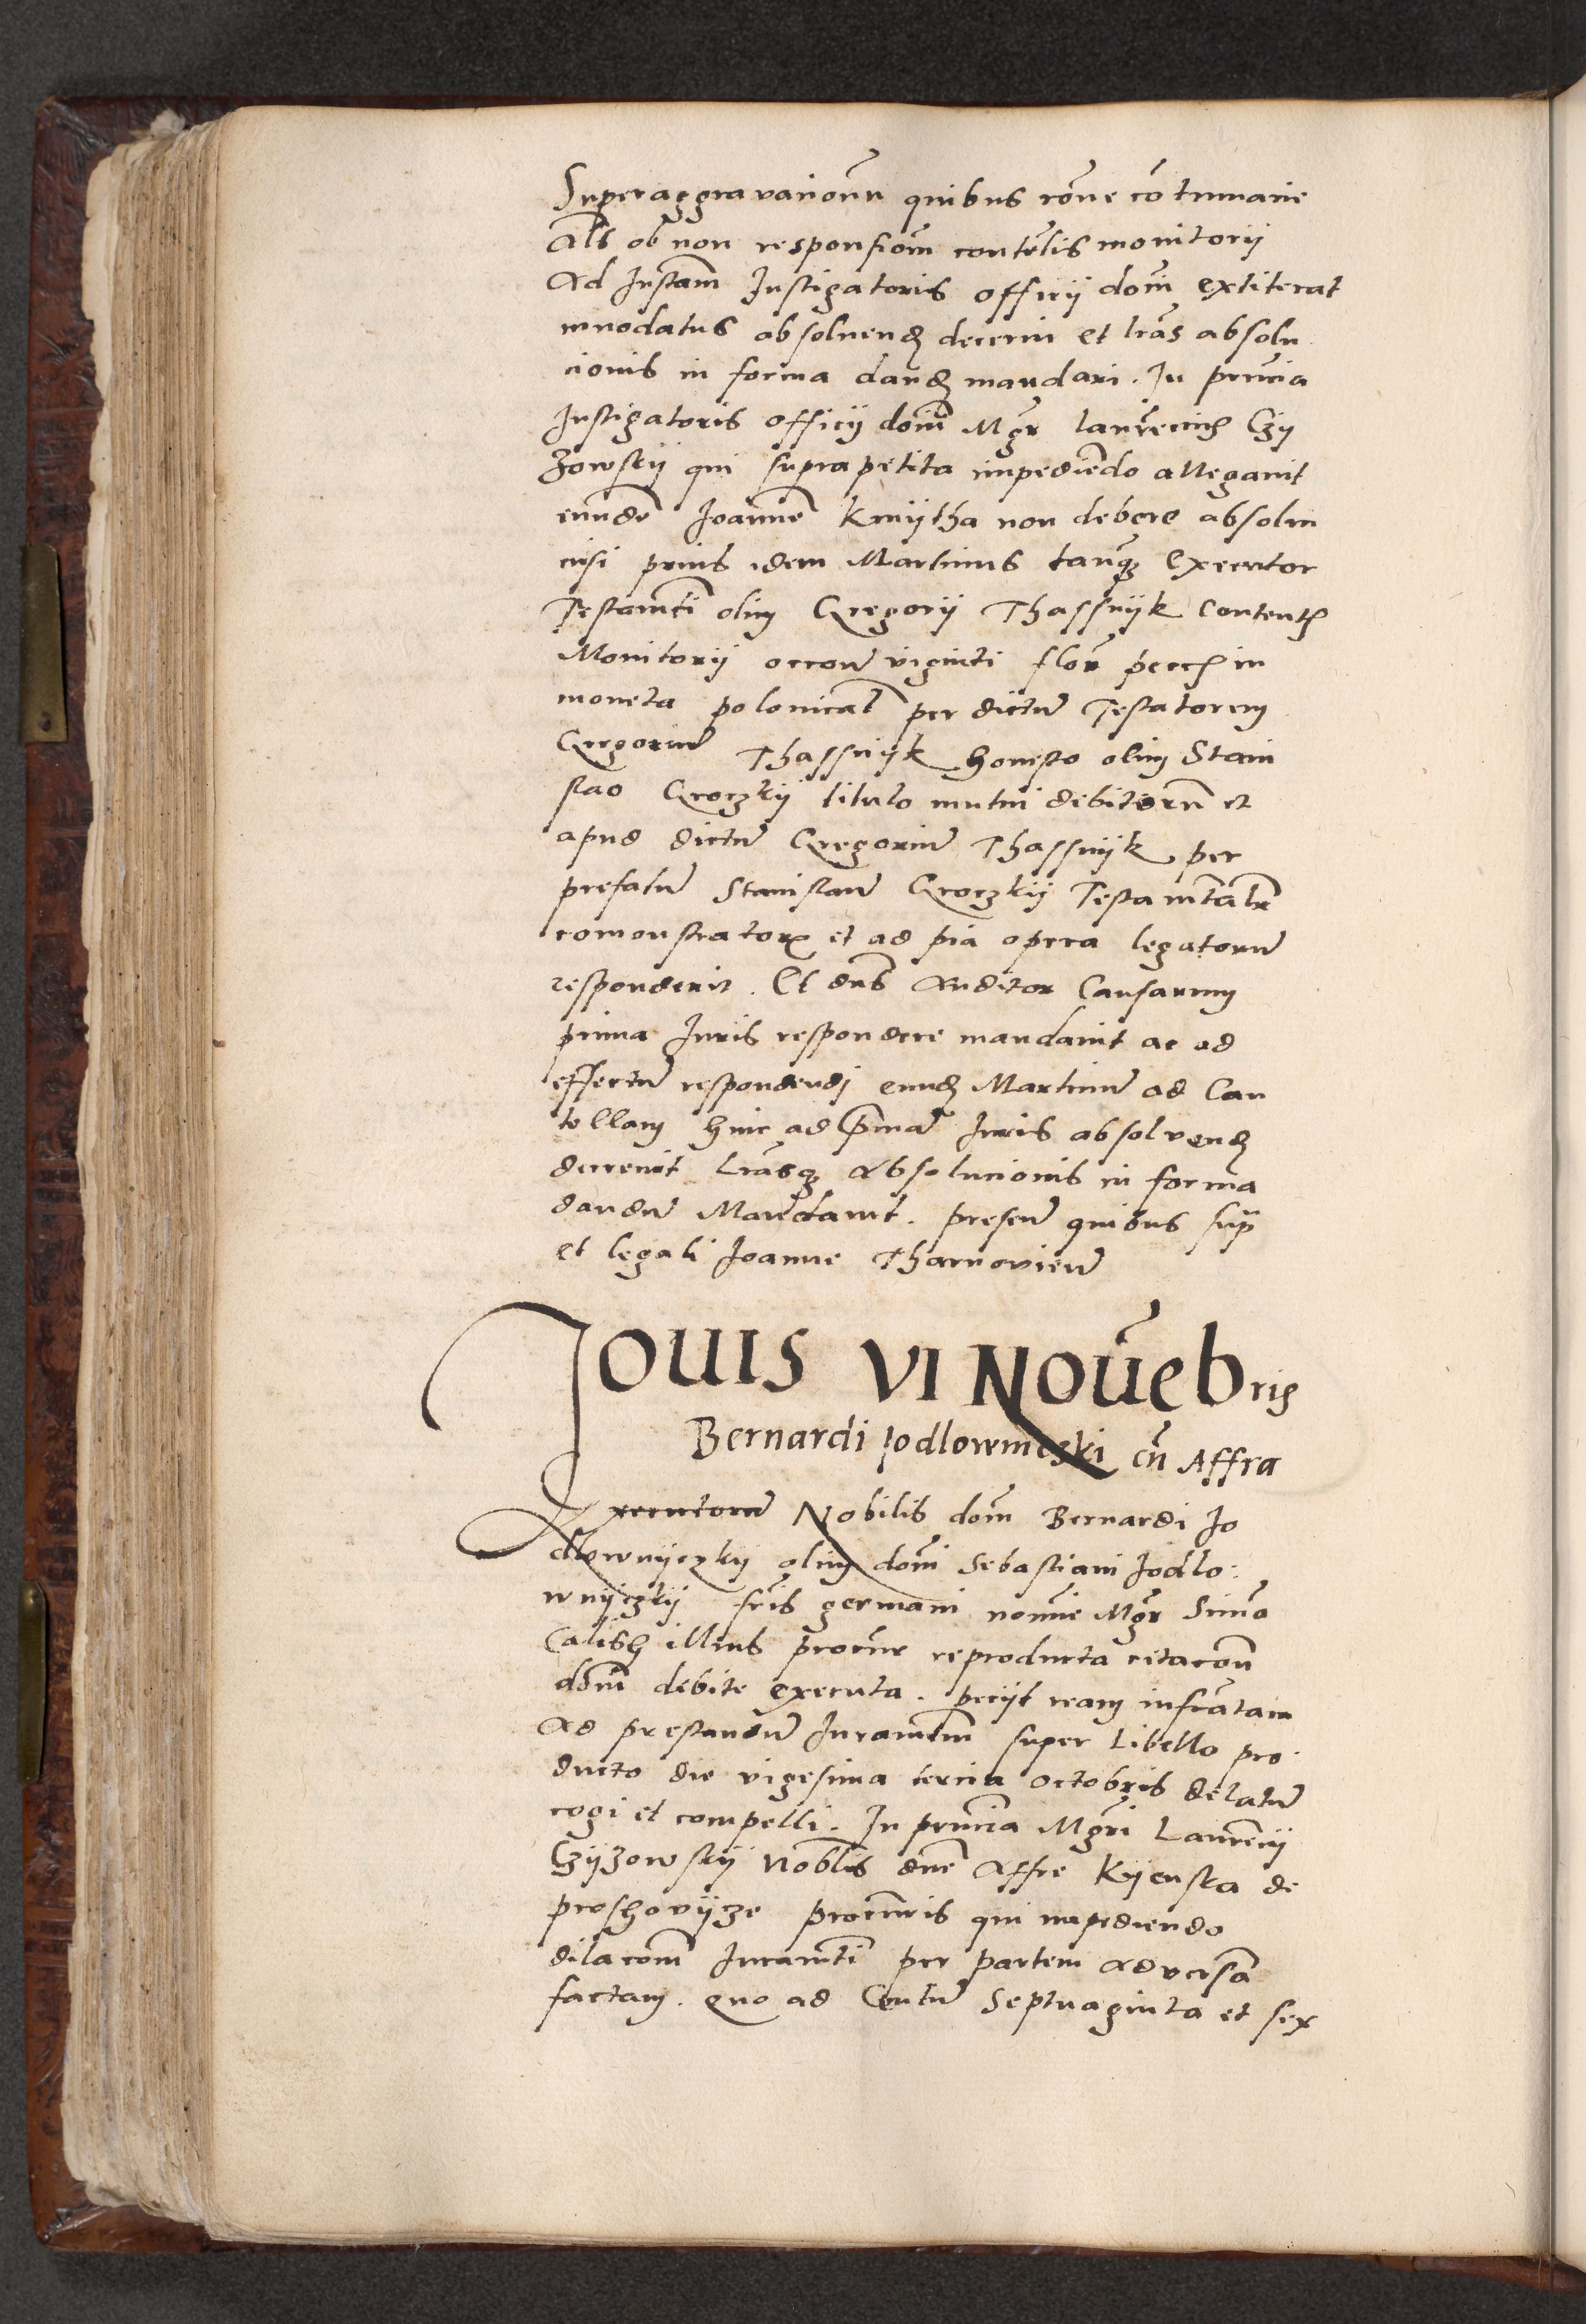 Superaggravacionū quibus rōne cōtumacie
Als ob non responsiom̄ contētis monitorii
Ad Instam̄ Instigatoris officij dom̄ extiterat
innodatus absoluend̄ decerni et lrās absolu
cionis in forma dand̄ mandari. In prn̄cia
Instigatoris officij dom̄ Mgr̄ laurēcius Czy
zowsky qui suprapetita impediēdo allegavit
eundē Joannē kmytha non debere absolui
nisi prius idem Martinus tanq̄ Executor
Testamēti olim Gregorij Thassnyk contentꝭ
Monitorij occoū viginti flor̄ pecc̄ in
moneta polonicalī per dictū Testatorem
Gregoriū Thassnyk honesto olim Stani
slao Groczky titulo mutui debitorū et
apud dictū Gregoriū Thassnyk per
prefatū Stanislaū Groczkij Testamētalr̄
comonstratorꝝ et ad pia opera legatorū
responderit. Et dn̄s Auditor Causarum
prima Juris respondere mandavit ac ad
effectū respondendj eund̄ Martinū ad Cau
tellam hinc ad p̄mā Juris absolvend̄
decrevit lrāsq̄ Absolucionis in forma
dandū Mandavit. presen̄ quibus sup̄
et legali Joanne Tharnovieū
Jouis VI Nouēbris
Bernardi Jodlowniczki cū Affra
Executorū Nobilis dom̄ Bernardi Jo
dlownyczky olim dom̄ Sebastiani Jodlo:
wnyczkij fr̄is germani nomīe Mgr̄ Simō
Calisz̄ illius procur̄ reproducta citacoū
dom̄ debite executa. petijt ream infrātam
Ad prestandū Juramētm̄ super Libello pro
ducto die vigesima tercia octobris delatū
cogi et compelli. In prn̄cia Mgr̄i Laurēcij
Czyzowsky Nobl̄is dnē Affre kyenska de
proshovycze procur̄is qui impediendo
dilacom̄ Juramēti per partem adversā
factam. quo ad Centū Septuaginta et sex